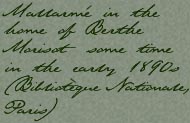 Mallarmé in the
home of Berthe
Morisot some time
in the early 1890s
(Bibliotèque Nationale,
Paris)